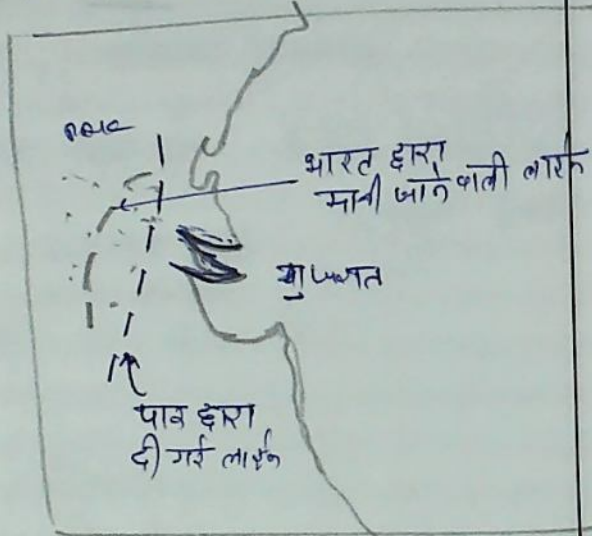 भारत द्वारा
मानी जाने वाली लाईन
गुजरात
पाक द्वारा
दी गई लाईन